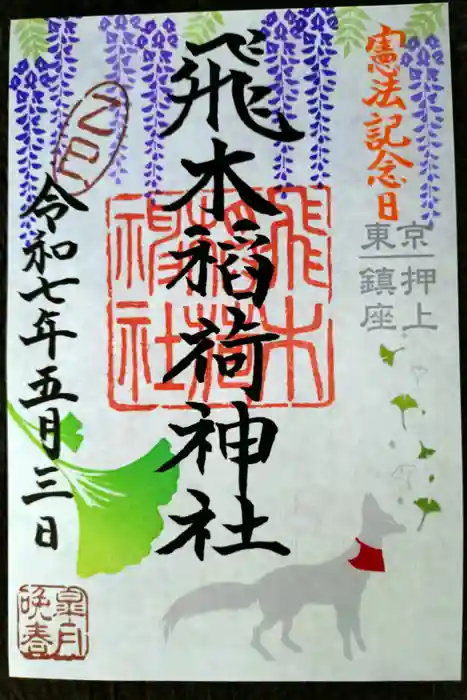 憲法記念日
東京押上
鎮座
飛木稲荷神社
飛木
稲荷
神社
令和七年五月三日
皐月
晩春